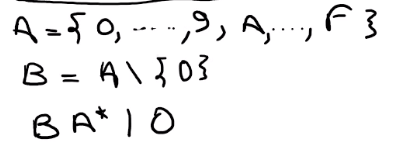 A = { 0, ....., 9, A, ...., F }
B = A \ { 0 }
B A* | 0